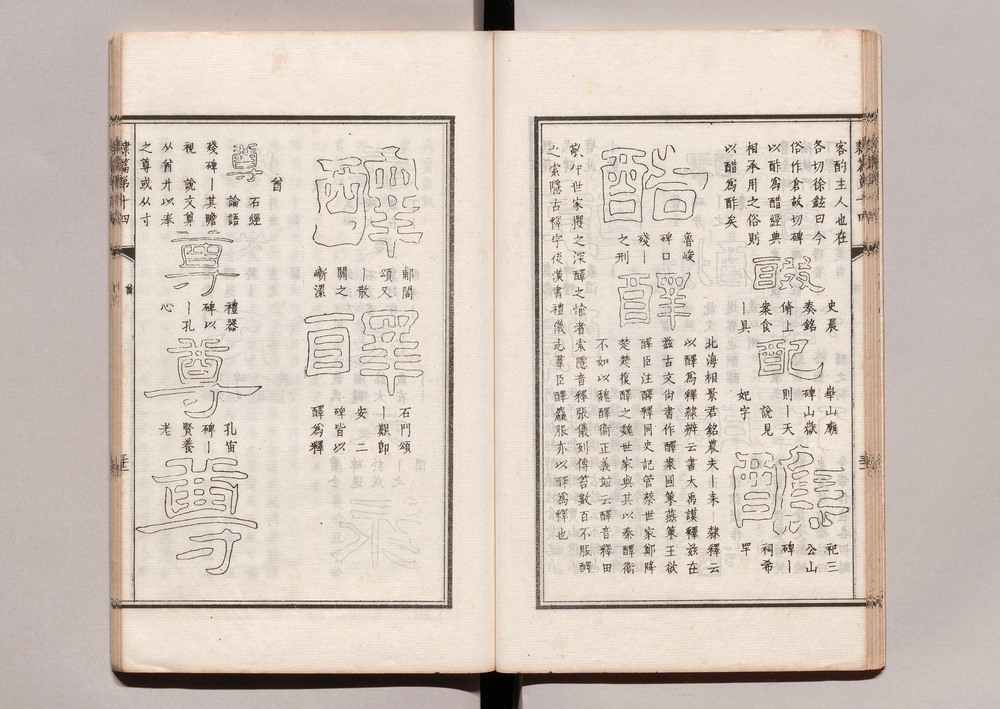 客酌主人也在
各切徐鉉曰今
俗作倉故切碑
以酢為醋經典
相承用之俗則
以醋為酢矣
醊
史晨
奏銘
脩上
案食
丨具
配
華山廟
碑山嶽
則丨天
說見
妃字
醮
祀三
公山
碑丨
祠希
罕
魯峻
碑口
殘丨
之刑
醳
北海相景君銘農夫丨耒 隸釋云
以醳為釋隸辨云書大禹謨釋茲在
茲古文尚書作醳案國策燕策王欲
醳臣注醳釋同史記管蔡世家鄭降
楚楚復醳之魏世家與其以秦醳衛
不如以魏醳衛正義竝云醳音釋田
敬仲世家攫之深醳之愉者索隱音釋張儀列傳笞數百不服醳
之索隱古釋字後漢書禮儀志羣臣醳麤服亦以醳為釋也
醳
郙閣
頌又
丨散
關之
嶃漯
醳
石門頌
丨艱即
安 二
碑皆以
醳為釋
酋
尊
石經
論語
殘碑丨其瞻
視 說文尊
从酋廾以奉
之尊或从寸
尊
禮器
碑以
丨孔
心
尊
孔宙
碑丨
賢養
老
尊
隸篇弟十四
酋